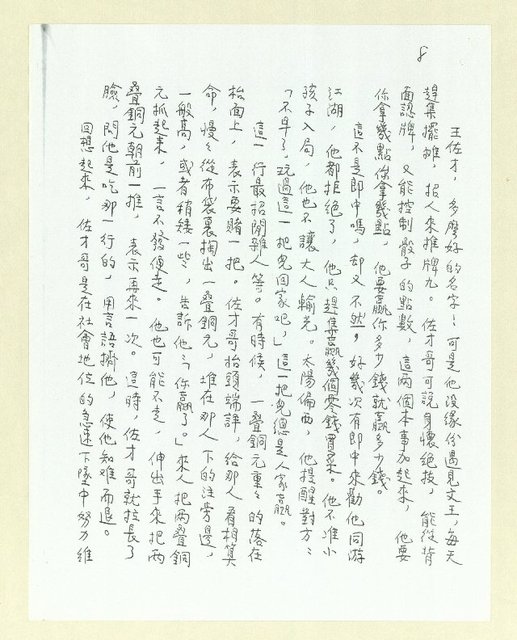 8
王佐才，多麼好的名字；可是他沒緣份遇見文王，每天
趕集擺攤，招人來推牌九。佐才哥可說身懷絕技，能從背
面認牌，又能控制骰子的點數，這兩個本事加起來，他要
你拿幾點你拿幾點，他要贏你多少錢就贏多少錢。
這不是郎中嗎，却又不然，好幾次有郎中來勸他同游
江湖，他都拒絕了，他只趕集贏幾個零錢買菜。他不准小
孩子入局，他也不讓大人輸光。太陽偏西，他提醒對方：
「不早了，玩過這一把兒回家吧，」這一把兒總是人家贏。
這一行最招閒雜人等。有時候，一疊銅元重重的落在
枱面上，表示要賭一把。佐才哥抬頭端詳，給那人看相算
命，慢々從布袋裏掏出一疊銅元，堆在那人下的注旁邊，
一般高，或者稍矮一些，告訴他：「你贏了。」來人把兩疊銅
元抓起來，一言不發便走。他也可能不走，伸出手來把兩
疊銅元朝前一推，表示再來一次。這時，佐才哥就拉長了
臉，問他是吃那一行的，用言語擠他，使他知難而退。
回想起來，佐才哥是在社會地位的急速下墜中努力維